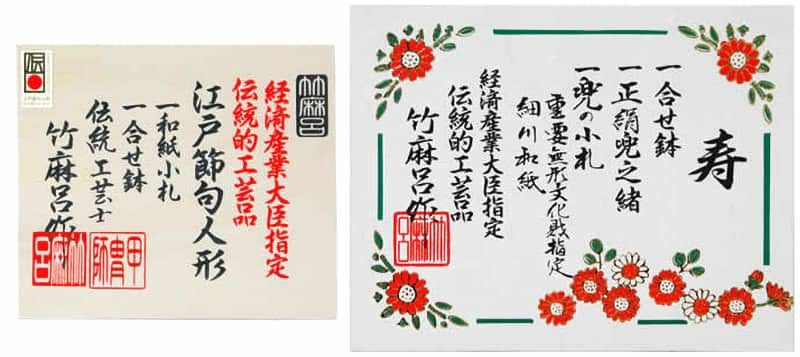 竹麻呂
経済産業大臣指定
伝統的工芸品
江戸節句人形
一和紙小札
一合せ鉢
伝統工芸士
竹麻呂作
甲冑師
竹麻呂
伝
寿
一合せ鉢
一正絹兜之緒
一兜の小札
重要無形文化財指定
細川和紙
経済産業大臣指定
伝統的工芸品
竹麻呂作
竹麻呂